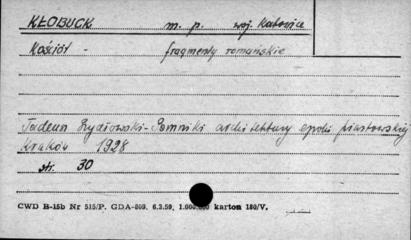 KŁOBUCK m. p. woj. Katowice
Kościół - fragmenty romańskie
Tadeusz Szydłowski - Pomniki architektury epoki piastowskiej
Kraków 1928
str. 30
CWD B-15b Nr 515/P. GDA-809. 6.3.59, 1.000.000 karton 180/V.